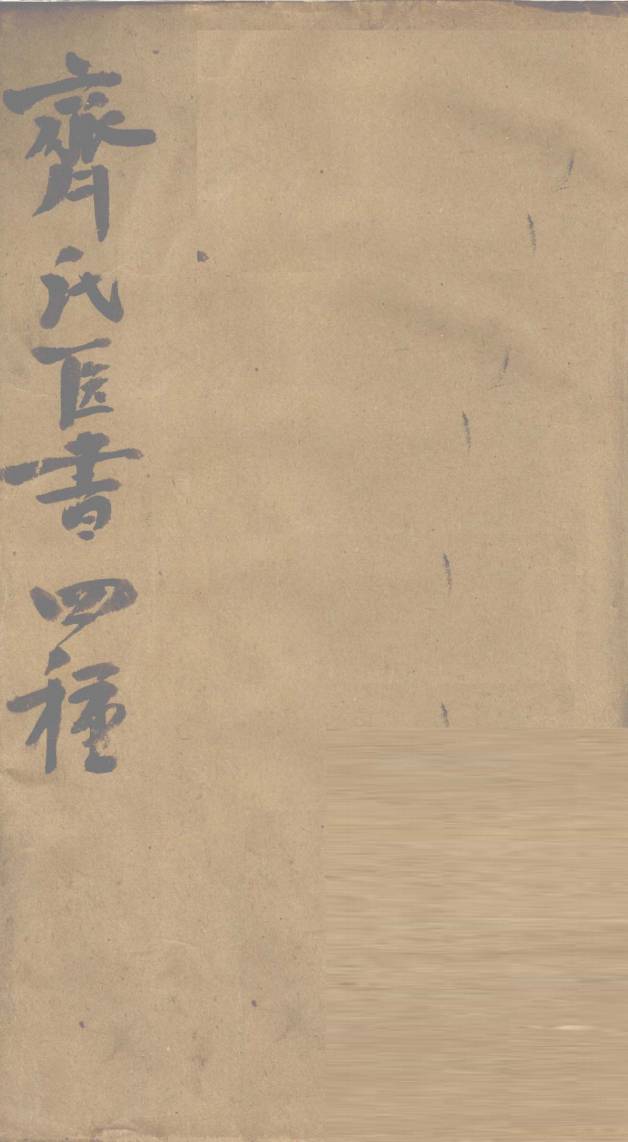 齊氏医書四種